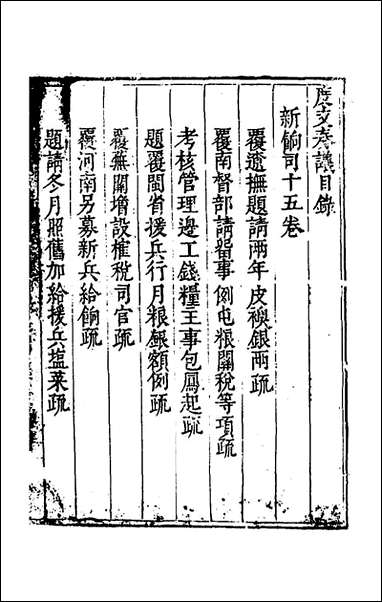 度支奏議目錄
新餉司十五卷
覆遼撫題請兩年皮襖銀兩疏
覆南督部請留事例屯粮關稅等項疏
考核管理邊工錢糧主事包鳳起疏
題覆閩省援兵行月粮銀額例疏
覆蕪關增設榷稅司官疏
覆河南另募新兵給餉疏
題請冬月照舊加給援兵塩菜疏